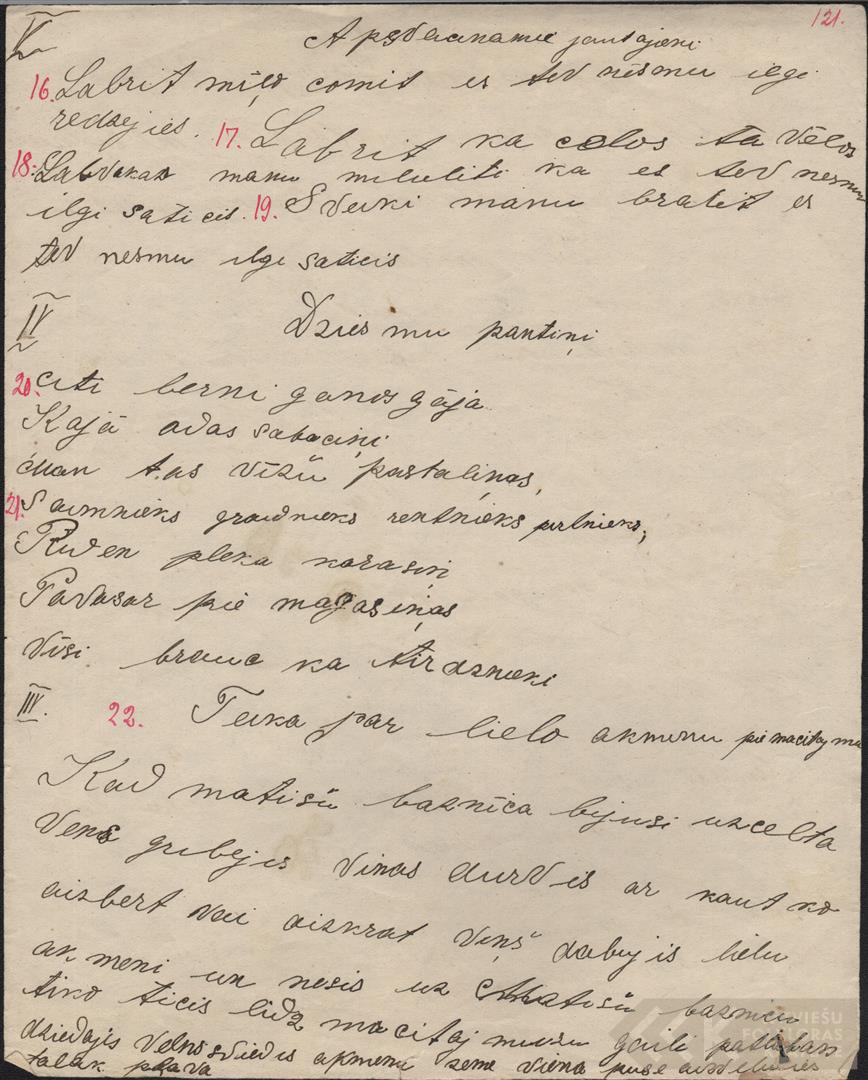 121.
V Apsveicinamie jautajeni
16. Labrit mīļo comit es tev nēsmu ilgi
redzejies. 17. Labrit ka celos ta vēlos
18. Labvakar manu mīluliti ka es tev nesmu
ilgi saticis. 19. Sveiki manu bralit es
tev nesmu ilgi saticis
IV Dziesmu pantiņi
20. citi berni ganos gāja
Kajā adas sabaciņi
man tas vīžu pastaliņas,
21. Saimnieks graudnieks rentnieks pirtnieks,
Ruden pleka karasiņ
Pavasar pie magasiņas
Visi brauc ka tirdznieki
III. 22. Teika par lielo akmenu pie macitaj mu
Kad matišu baznica bijusi uzcelta
Vens gribejis viņas durvis ar kaut ko
aizbert vai aizkrat viņš dabujis lielu
akmeni un nesis uz matišu baznicu
tiko ticis lidz macitaj muižu gaili patlaban
dziedajis velns sviedis akmenu zeme viena puse
talak plava